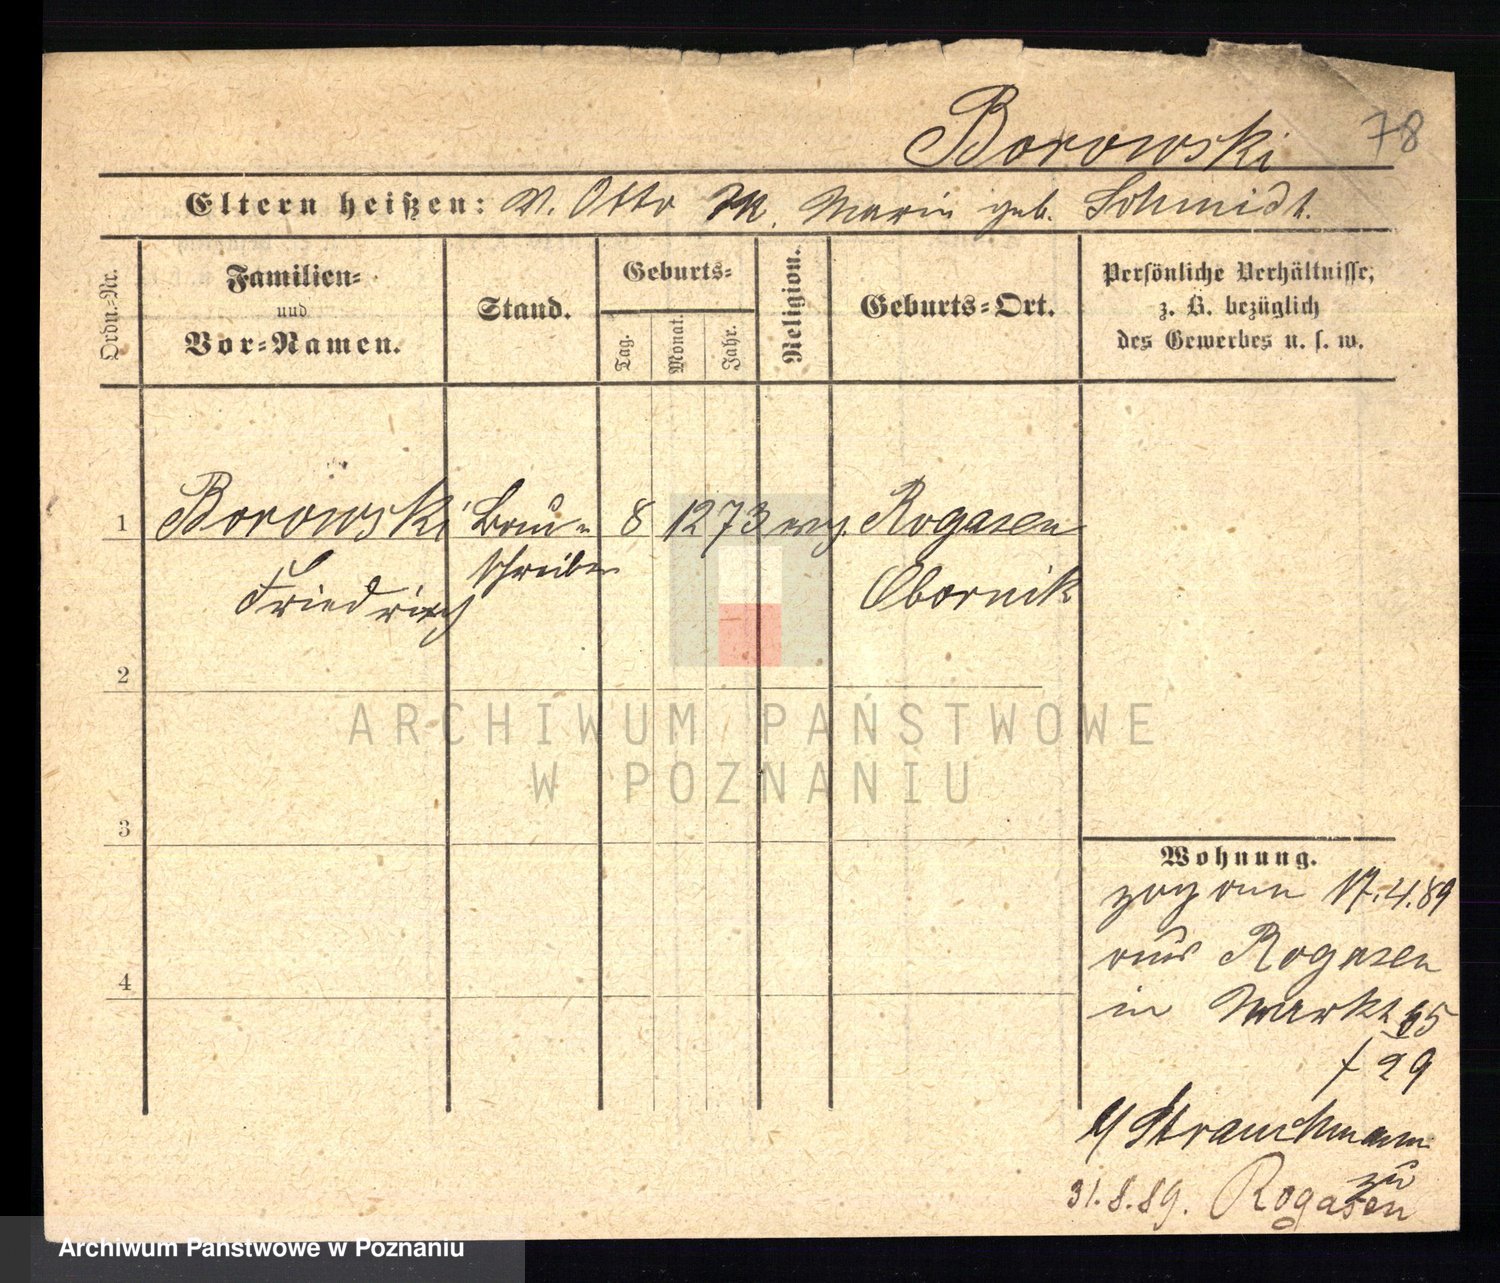 Borowski 78
Eltern heißen: V. Otto M. Marie geb. Schmidt.
Ordn.-Nr.
Familien-
und
Vor-Namen.
Stand.
Geburts-
Tag.
Monat.
Jahr.
Religion.
Geburts-Ort.
Persönliche Verhältnisse,
z. B. bezüglich
des Gewerbes u. s. w.
1 Borowski 8 12 73 evg. Rogasen
Friedrich schreiber Obornik
2
3
4
Wohnung.
zog am 17.4.89
aus Rogasen
in Markt
f 29
Strauchmann
zu
31.8.89. Rogasen
ARCHIWUM PAŃSTWOWE
W POZNANIU
Archiwum Państwowe w Poznaniu